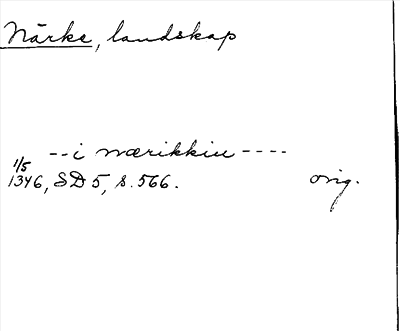 Närke, landskap
-- i nærikkiu ----
1/5
1346, SD 5, s. 566. orig.